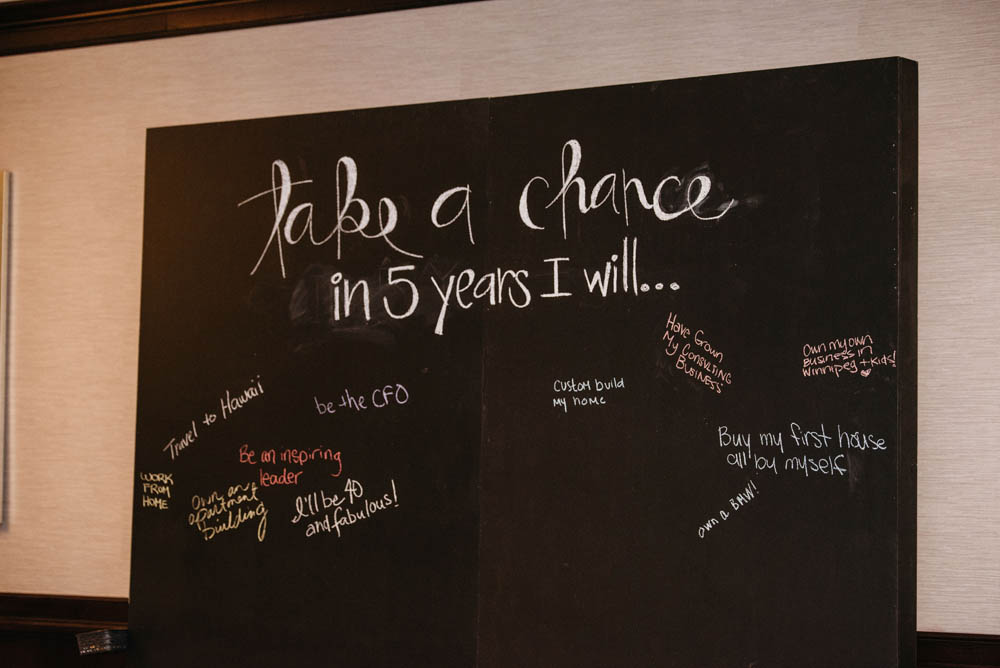 take a chance
in 5 years I will...
Travel to Hawaii
be the CFO
WORK
FROM
HOME
Be an inspiring
leader
own an
apartment
building
I'll be 40
and fabulous!
Custom build
my home
Have Grown
My Consulting
Business
Own my own
Business in
Winnipeg + Kids!
Buy my first house
all by myself
own a BMW!